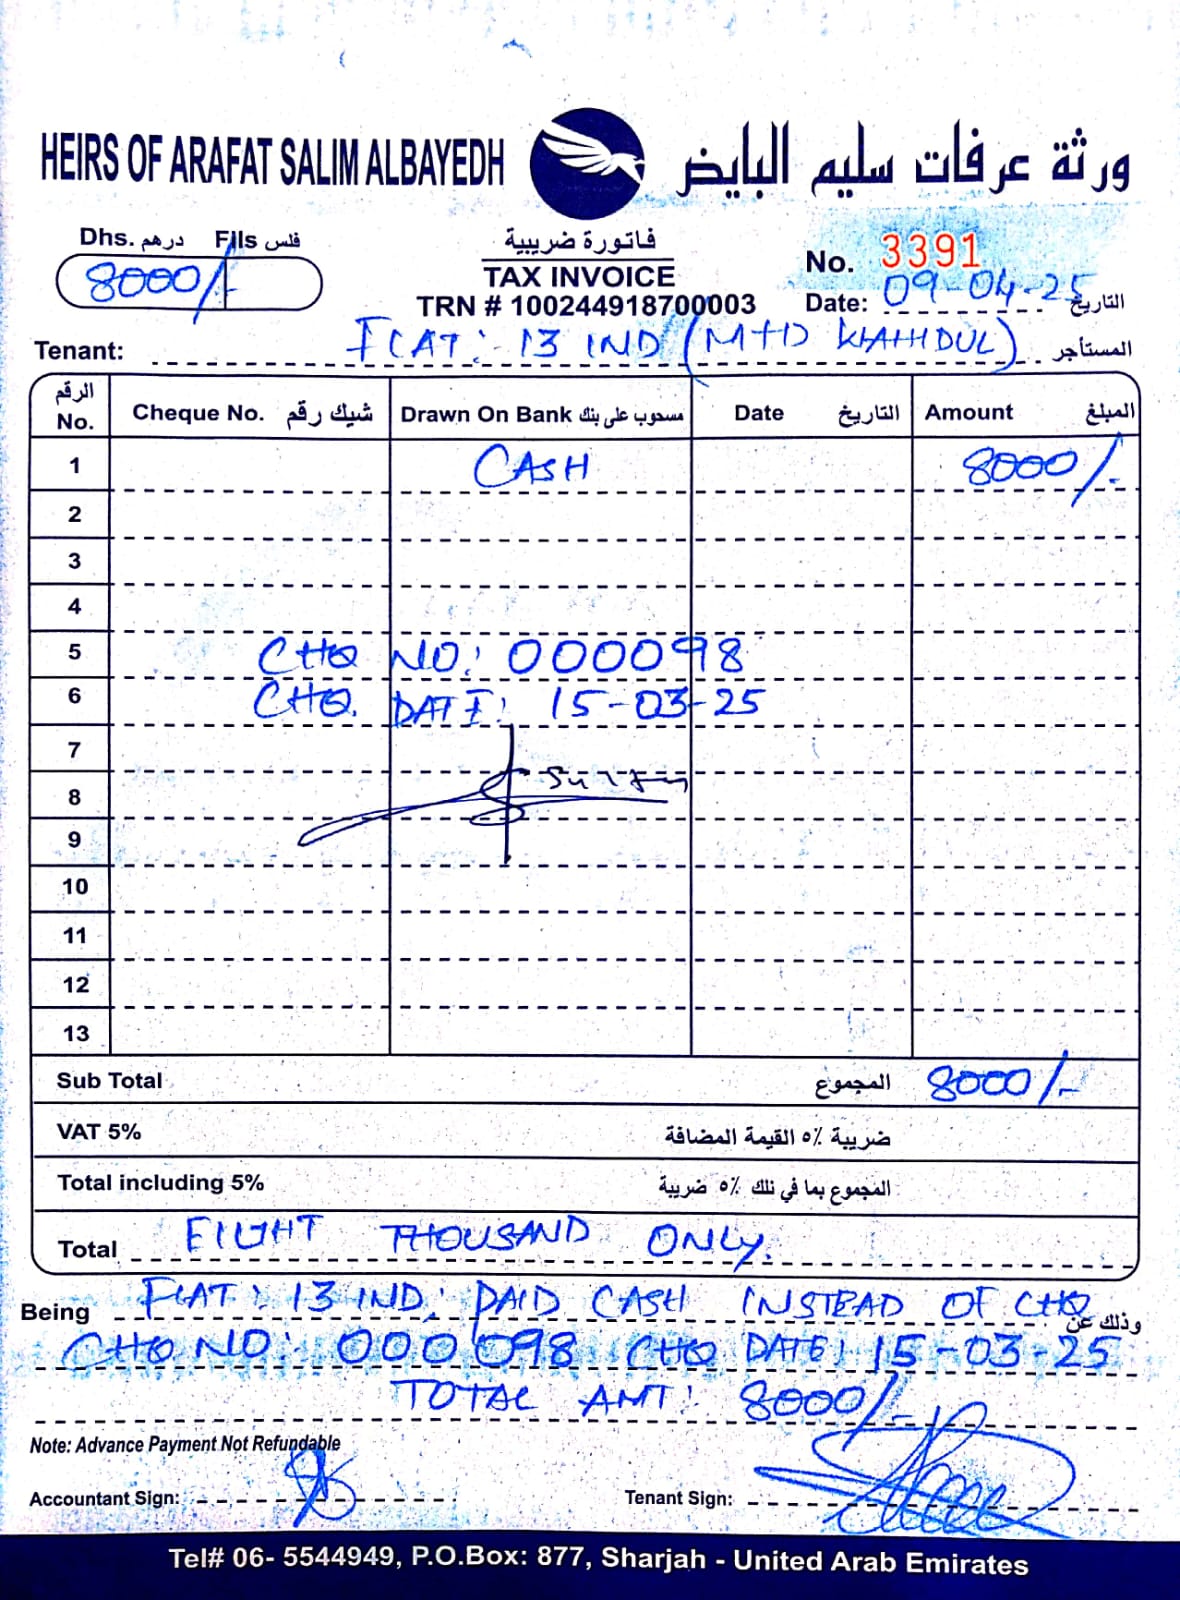 HEIRS OF ARAFAT SALIM ALBAYEDH ورثة عرفات سليم البايض
Dhs. درهم Fils فلس
8000/-
فاتورة ضريبية
TAX INVOICE
TRN # 100244918700003
No. 3391
Date: 09-04-25 التاريخ
Tenant: FLAT: 13 IND (MHD KHAHIDUL) المستأجر
الرقم No. Cheque No. شيك رقم Drawn On Bank مسحوب على بنك Date التاريخ Amount المبلغ
1 CASH 8000/-
2
3
4
5 CHQ NO: 000098
6 CHQ. DATE: 15-03-25
7
8 Sultan
9
10
11
12
13
Sub Total المجموع 8000/-
VAT 5% ضريبة ٥٪ القيمة المضافة
Total including 5% المجموع بما في تلك ٥٪ ضريبة
Total EIGHT THOUSAND ONLY.
Being FLAT: 13 IND: PAID CASH INSTEAD OF CHQ وذلك عن
CHQ NO: 000098 CHQ DATE: 15-03-25
TOTAL AMT: 8000/-
Note: Advance Payment Not Refundable
Accountant Sign: Tenant Sign:
Tel# 06- 5544949, P.O.Box: 877, Sharjah - United Arab Emirates